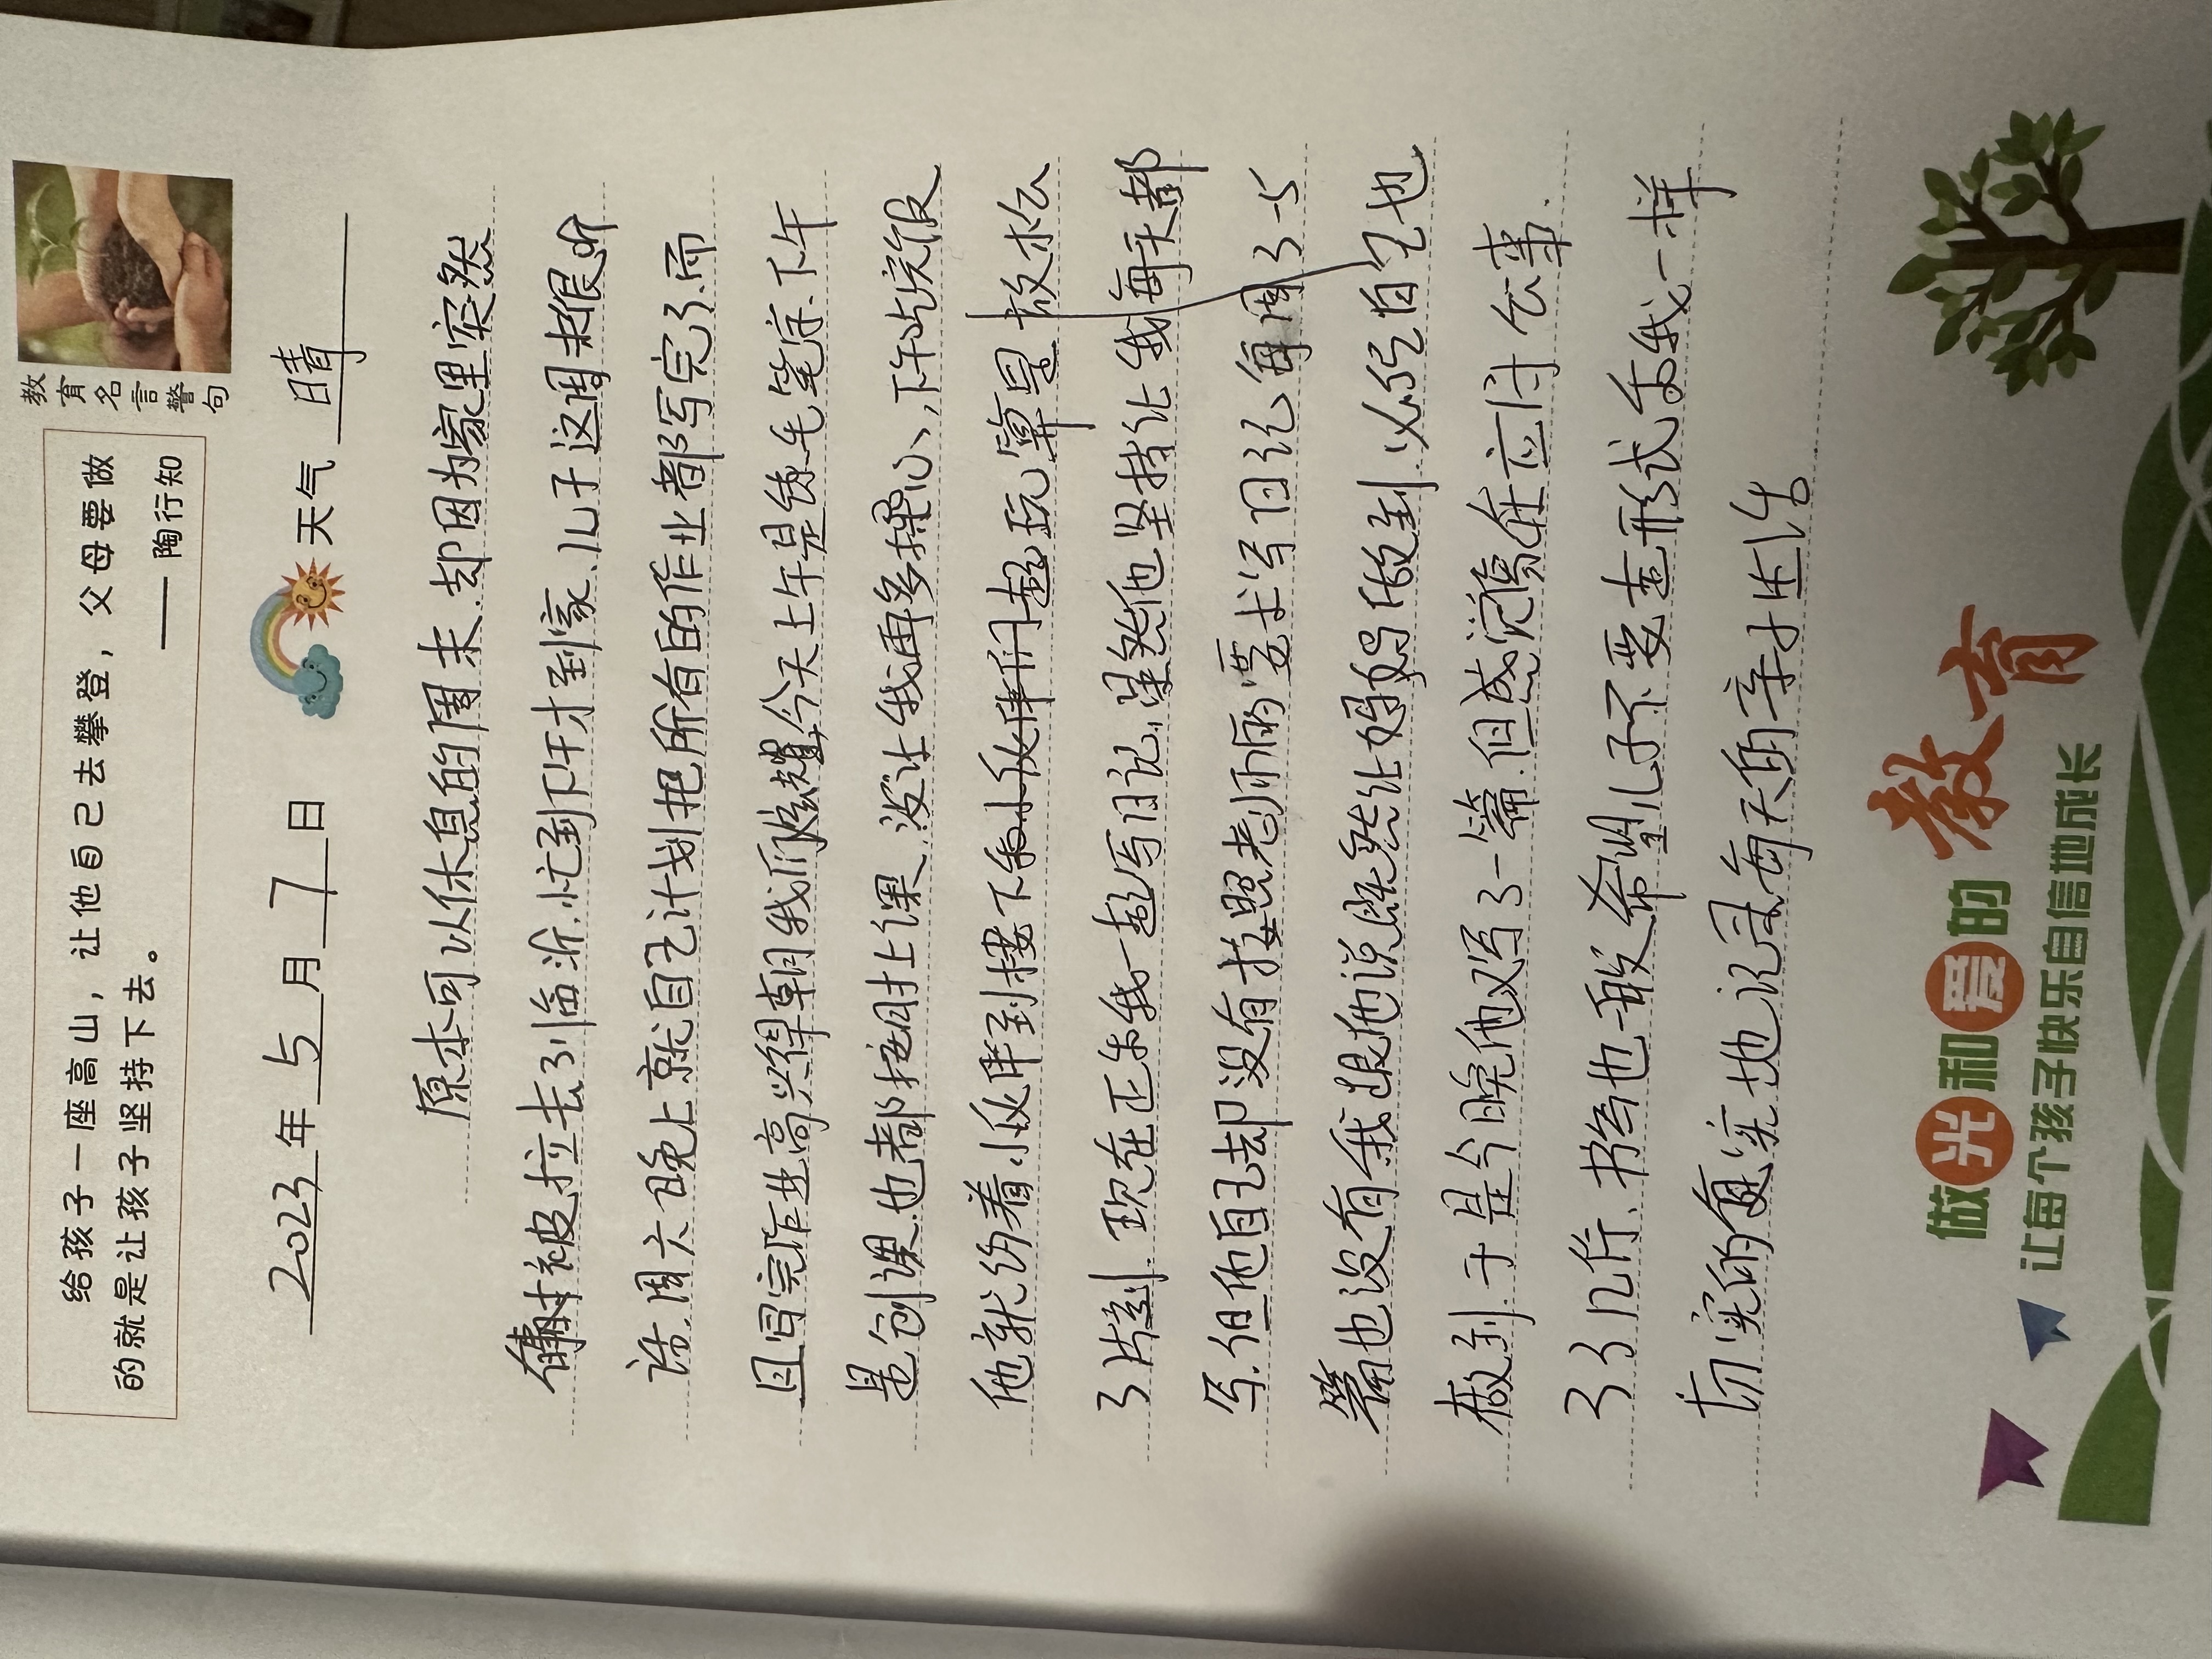 教育名言警句
给孩子一座高山，让他自己去攀登，父母要做
的就是让孩子坚持下去。 ——陶行知
2023年5月7日 天气 晴
原本可以休息的周末.却因为家里突然
有事被拉去了临沂.忙到下午才到家、儿子这周末很听
话.周六晚上就自己计划把所有的作业都写完了.而
且写完作业高兴得朝我们炫耀.今天上午是练毛笔字.下午
是创课.也都按时上课.没让我再多操心、下午吃完饭
他就约着小胖到楼下和小胖们一起玩.算是放松
了片刻.现在正和我一起写日记.虽然他坚持让我每天都
写.但他自己却没有按照老师的要求写日记每周3-5
篇也没有.我跟他说既然让妈妈做到.必须自己也
做到.于是今晚他又写了一篇.但感觉像在应付公事.
了了几行.书写也一般.希望儿子不要走形式和我一样
切实的真实地记录每天的亲子生活
做光和爱的教育
让每个孩子快乐自信地成长